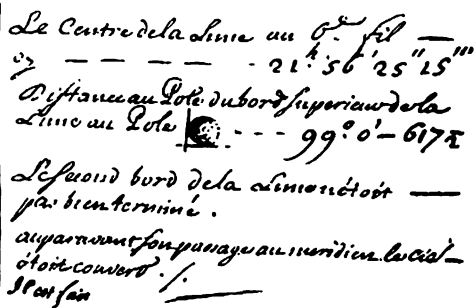 Le Centre de la Lune au 6.e fil —
à — — — — — 21.h 56' 25" 15'''
Distance au Pole du bord superieur de la
Lune au Pole - - - 99° 0' — 617
Le second bord de la Lune n'étoit —
pas bien terminé.
auparavant son passage au meridien le ciel
étoit couvert ./.
Il est